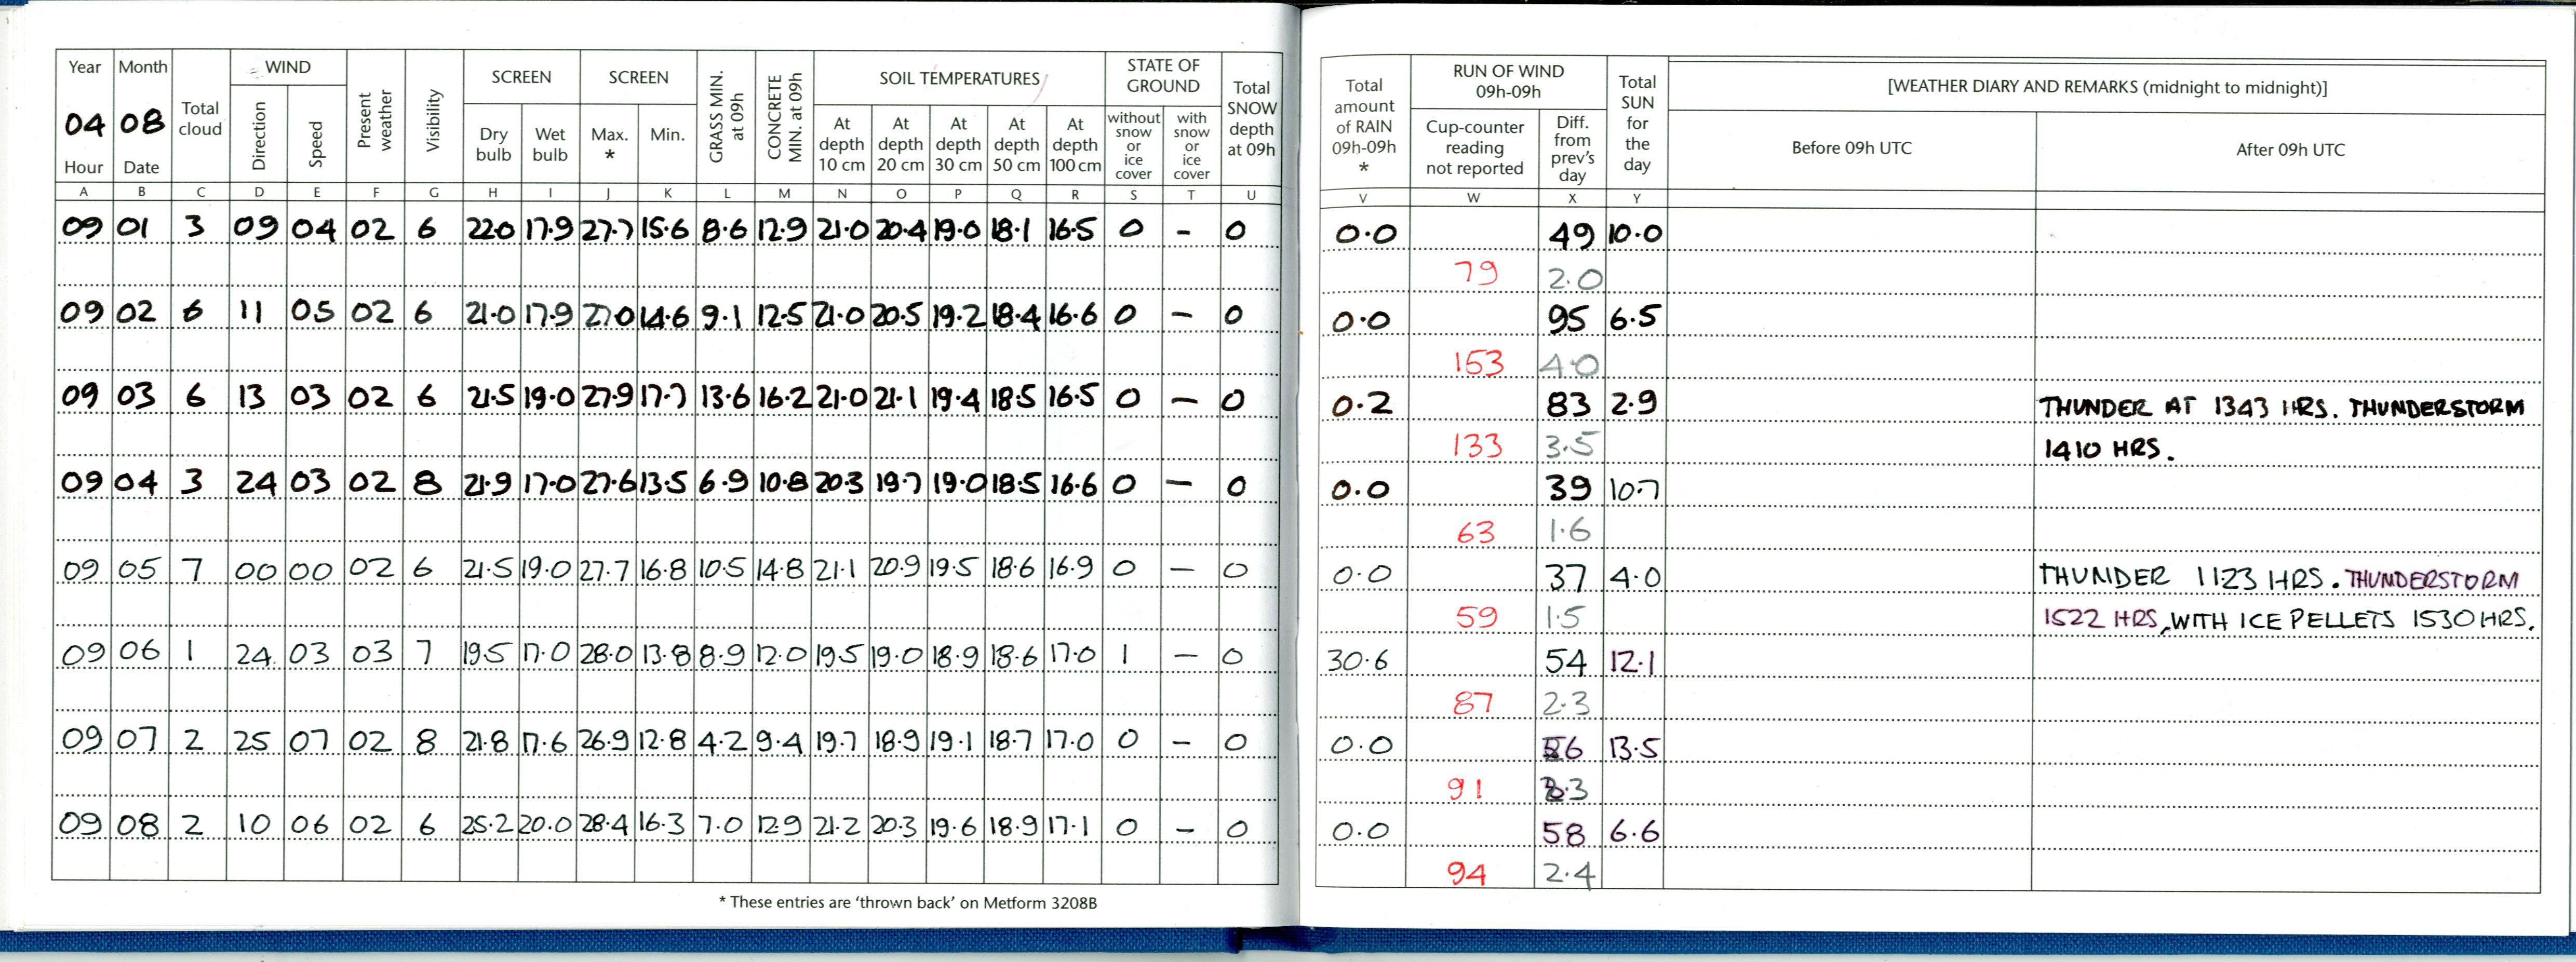 Year Month Total cloud WIND Present weather Visibility SCREEN SCREEN GRASS MIN. at 09h CONCRETE MIN. at 09h SOIL TEMPERATURES STATE OF GROUND Total SNOW depth at 09h
04 08 Direction Speed Dry bulb Wet bulb Max. * Min. At depth 10 cm At depth 20 cm At depth 30 cm At depth 50 cm At depth 100 cm without snow or ice cover with snow or ice cover
Hour Date
A B C D E F G H I J K L M N O P Q R S T U
09 01 3 09 04 02 6 22.0 17.9 27.7 15.6 8.6 12.9 21.0 20.4 19.0 18.1 16.5 0 - 0
09 02 6 11 05 02 6 21.0 17.9 27.0 14.6 9.1 12.5 21.0 20.5 19.2 18.4 16.6 0 - 0
09 03 6 13 03 02 6 21.5 19.0 27.9 17.7 13.6 16.2 21.0 21.1 19.4 18.5 16.5 0 - 0
09 04 3 24 03 02 8 21.9 17.0 27.6 13.5 6.9 10.8 20.3 19.7 19.0 18.5 16.6 0 - 0
09 05 7 00 00 02 6 21.5 19.0 27.7 16.8 10.5 14.8 21.1 20.9 19.5 18.6 16.9 0 - 0
09 06 1 24 03 03 7 19.5 17.0 28.0 13.8 8.9 12.0 19.5 19.0 18.9 18.6 17.0 1 - 0
09 07 2 25 07 02 8 21.8 17.6 26.9 12.8 4.2 9.4 19.7 18.9 19.1 18.7 17.0 0 - 0
09 08 2 10 06 02 6 25.2 20.0 28.4 16.3 7.0 12.9 21.2 20.3 19.6 18.9 17.1 0 - 0
* These entries are 'thrown back' on Metform 3208B
Total amount of RAIN 09h-09h * RUN OF WIND 09h-09h Total SUN for the day [WEATHER DIARY AND REMARKS (midnight to midnight)]
Cup-counter reading not reported Diff. from prev's day Before 09h UTC After 09h UTC
V W X Y
0.0 49 10.0
79 2.0
0.0 95 6.5
153 4.0
0.2 83 2.9 THUNDER AT 1343 HRS. THUNDERSTORM
133 3.5 1410 HRS.
0.0 39 10.7
63 1.6
0.0 37 4.0 THUNDER 1123 HRS. THUNDERSTORM
59 1.5 1522 HRS, WITH ICE PELLETS 1530 HRS.
30.6 54 12.1
87 2.3
0.0 13.5
91
0.0 58 6.6
94 2.4